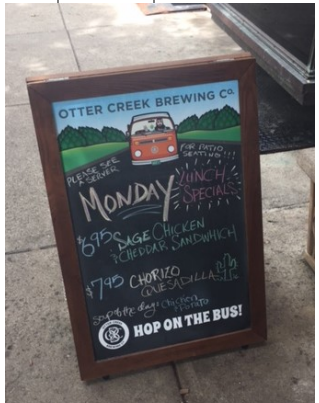 OTTER CREEK BREWING Co.
PLEASE SEE
A SERVER
FOR PATIO
SEATING!!!
MONDAY
LUNCH
SPECIALS
$6.95 SAGE CHICKEN
& CHEDDAR SANDWHICH
$7.95 CHORIZO
QUESADILLA
Soup of the day: Chicken
Potato
HOP ON THE BUS!